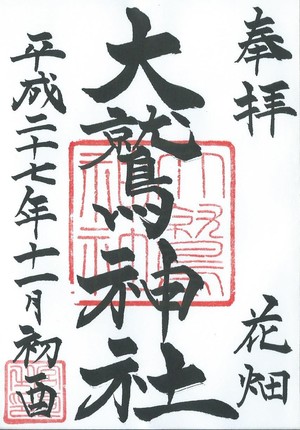 奉拝 花畑
大鷲神社
平成二十七年十一月初酉